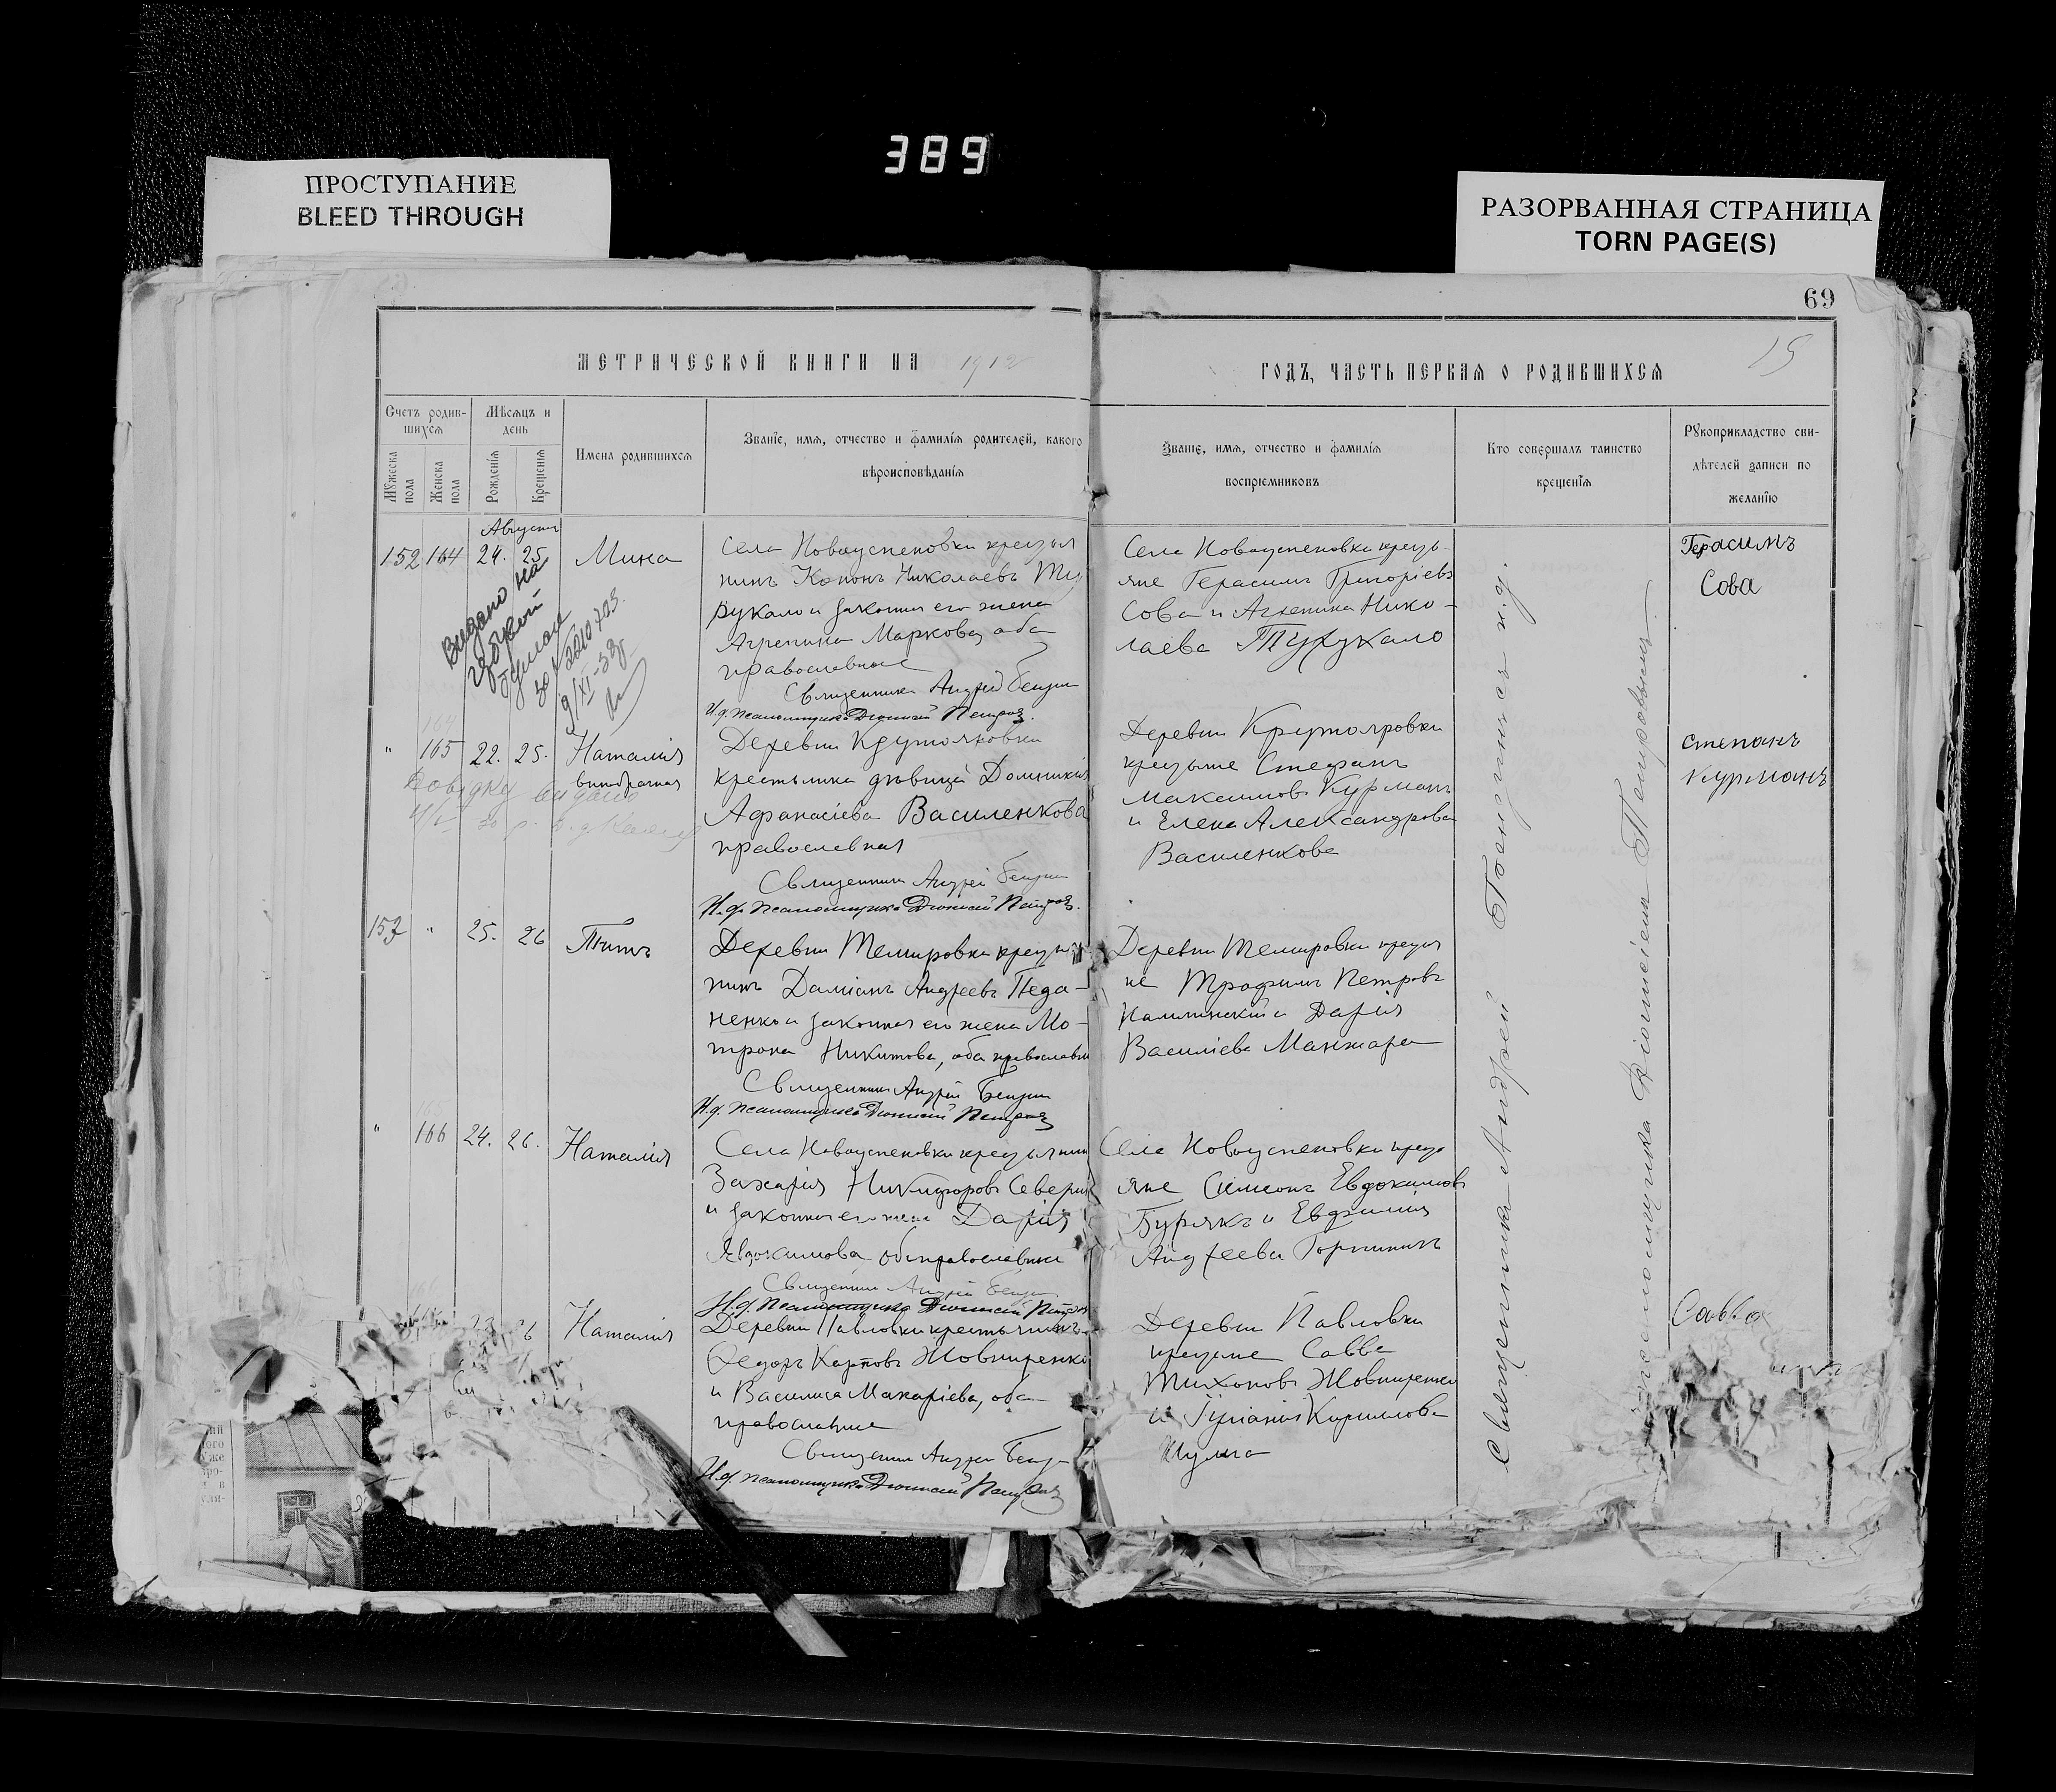 389
ПРОСТУПАНИЕ
BLEED THROUGH
РАЗОРВАННАЯ СТРАНИЦА
TORN PAGE(S)
69
15
МЕТРИЧЕСКОЙ КНИГИ НА 1912
ГОДЪ, ЧАСТЬ ПЕРВАЯ О РОДИВШИХСЯ
Счетъ родив-
шихся
Мѣсяцъ и
день
Мужеска пола
Женска пола
Рожденія
Крещенія
Имена родившихся
Званіе, имя, отчество и фамилія родителей, какого
вѣроисповѣданія
Званіе, имя, отчество и фамилія
воспріемниковъ
Кто совершалъ таинство
крещенія
Рукоприкладство сви-
дѣтелей записи по
желанію
Августъ
152 164 24. 25 Мина
Села Новоуспеновки крестья
нинъ Кононъ Николаевъ Ту
рукало и законная его жена
Агрепина Маркова, оба
православные
Священникъ Андрей
И.д. псаломщика Діонисій Петров
Села Новоуспеновки кресть-
яне Герасимъ Григоріевъ
Сова и Агрепина Нико-
лаева Турукало
Герасимъ
Сова
Видано на
" 165 22. 25. Наталія
Деревни Крутояровки
крестьянка дѣвица Домникія
Афанасіева Василенкова
православная
Священникъ Андрей
И.д. псаломщика Діонисій Петров
Деревни Крутояровки
крестьяне Стефанъ
Максимовъ Курманъ
и Елена Александрова
Василенкова
Степанъ
Курманъ
Довідку видано
153 " 25. 26 Титъ
Деревни Темировки крестья
нинъ Даміанъ Андреевъ Педа-
ненко и законная его жена Мо-
трона Никитова, оба православн
Священникъ Андрей
И.д. псаломщика Діонисій Петров
Деревни Темировки крестья
не Трофимъ Петровъ
Калинскій и Дарія
Василіева Манжара
" 166 24. 26. Наталія
Села Новоуспеновки крестьянин
Захарія Никифоровъ Северин
и законная его жена Дарія
Евдокимова оба православные
Священникъ Андрей
И.д. псаломщика Діонисій Петров
Села Новоуспеновки кресть
яне Симеонъ Евдокимовъ
Бурякъ и Евфимія
Андреева Горпинин
Наталія
Деревни Павловки крестьянинъ
Федоръ Карповъ Жовниренко
и Василиса Макаріева, оба
православные
Священникъ Андрей
И.д. псаломщика Діонисій Петров
Деревни Павловки
крестьяне Савва
Тихоновъ Жовниренко
и Іуліанія Кириллова
Шульга
Савва
Священникъ Андрей
псаломщика Діонисій Петровъ